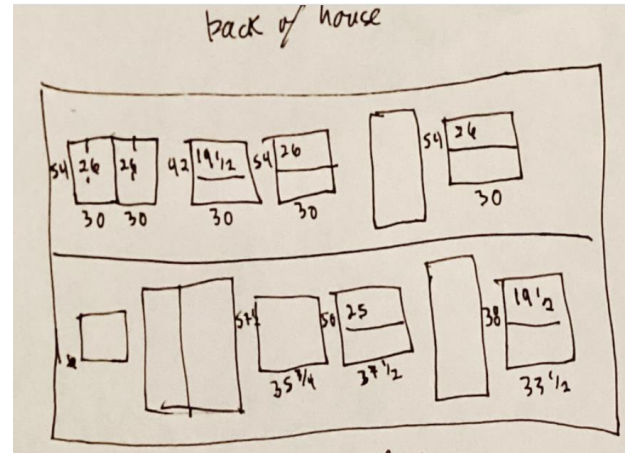 back of house
54 26 26 42 19 1/2 54 26 54 26
30 30 30 30 30
57 1/2 50 25 38 19 1/2
35 3/4 37 1/2 33 1/2